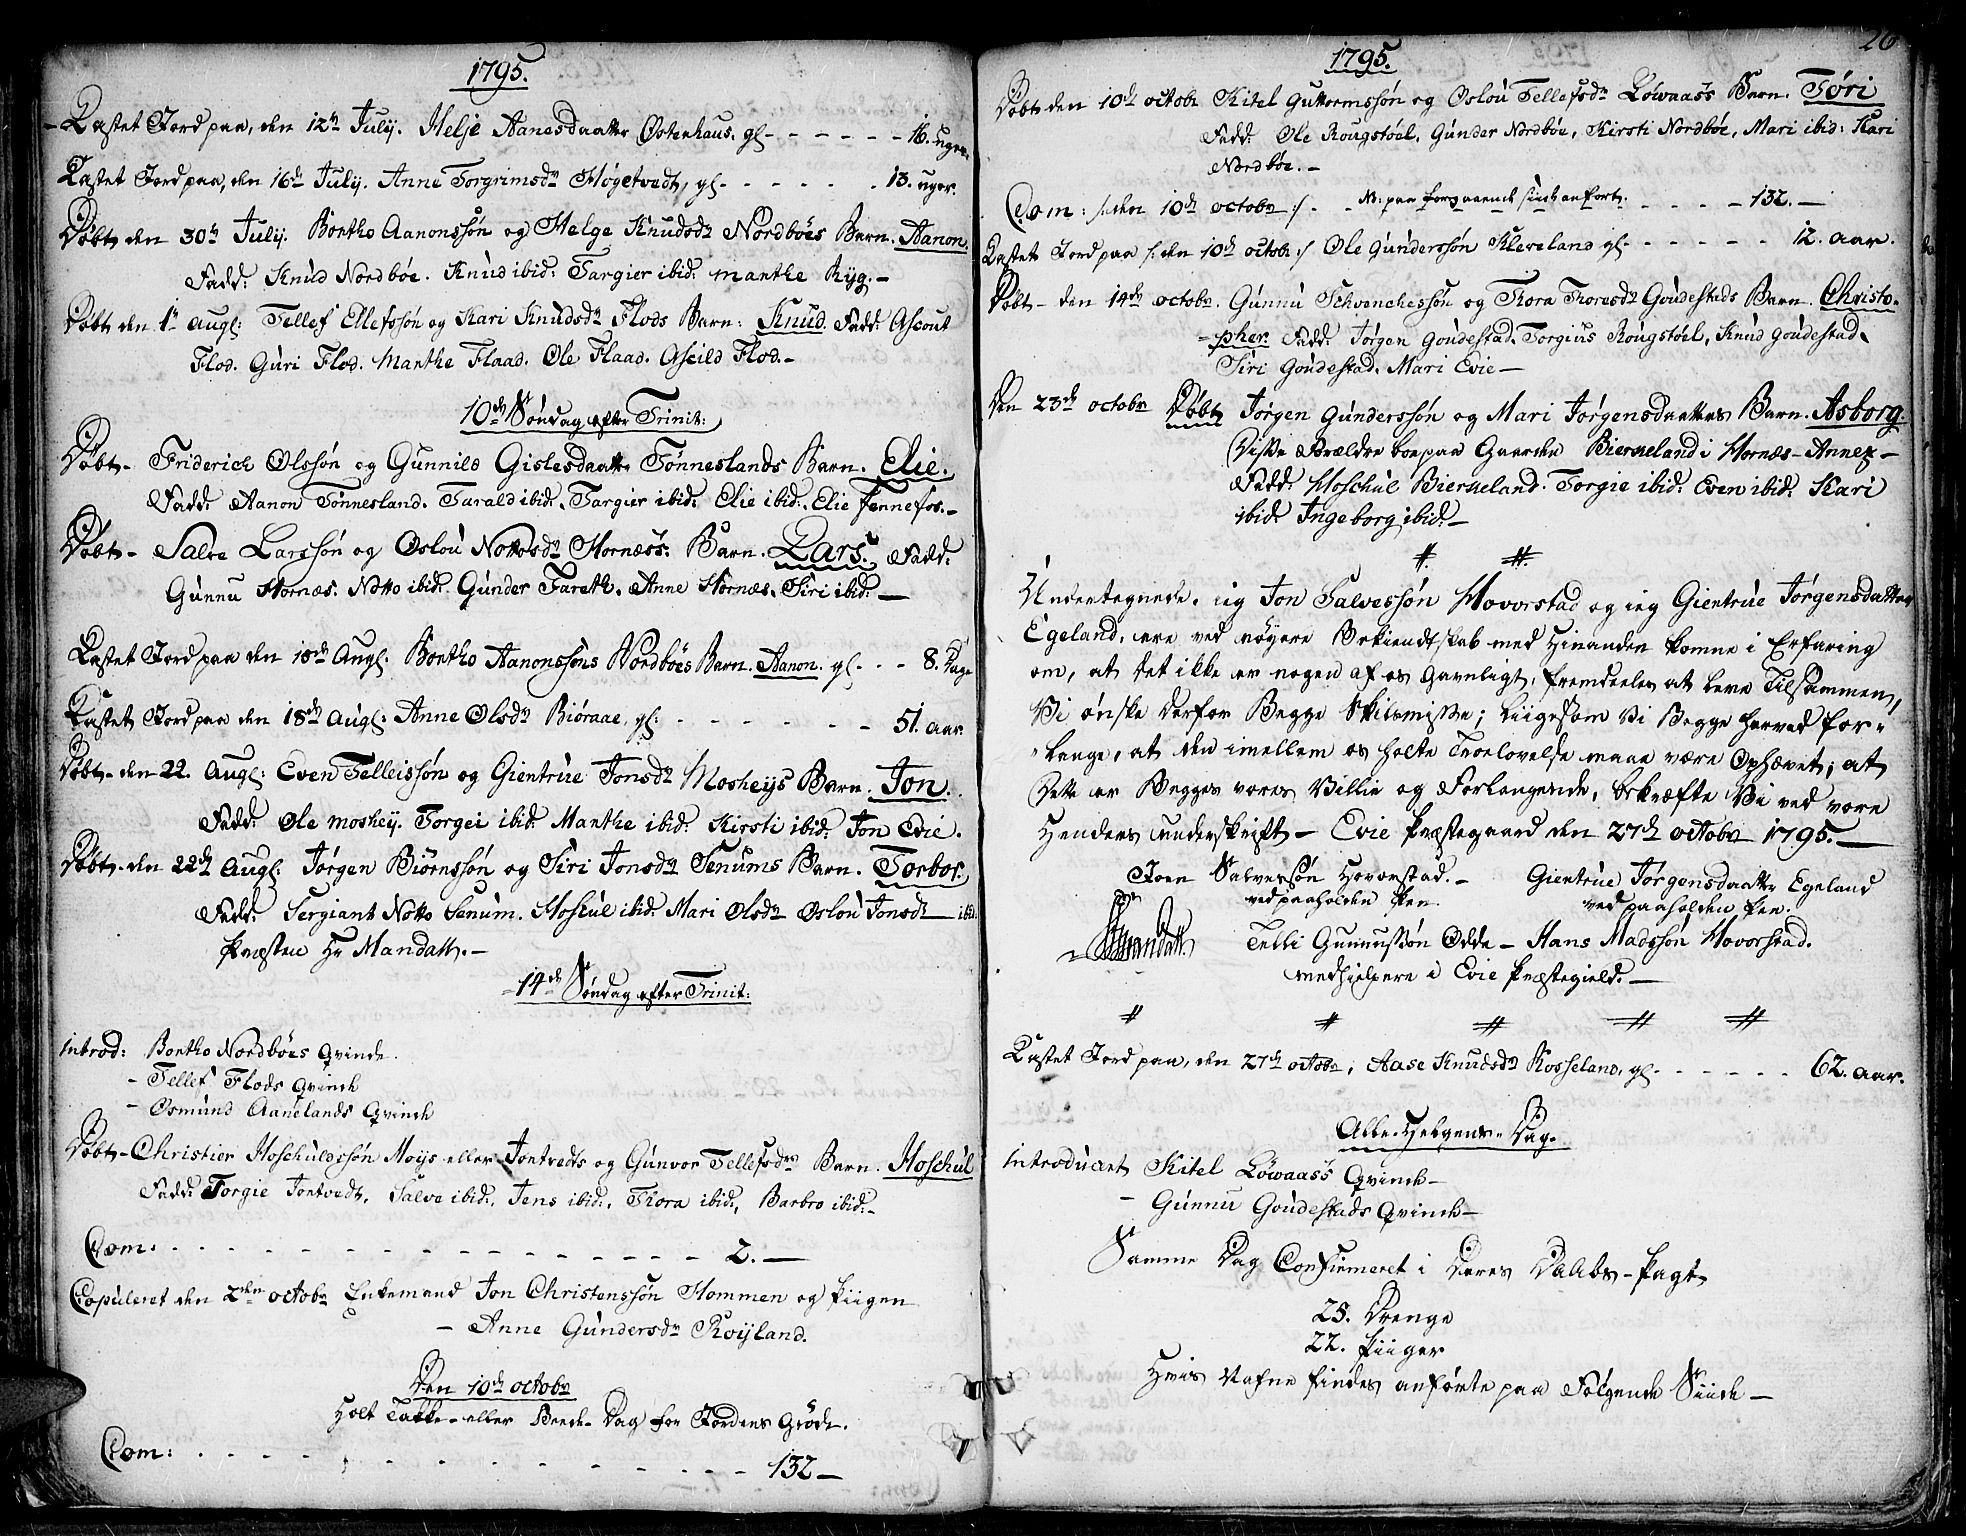 1795.
Kastet Jord paa, den 12te July. Helje Aanesdaatter Østenhaus. gl. - - - - - - 16. uger.
Kastet Jord paa, den 16de July. Anne Torgrimsdr Høgetvedt, gl. - - - - - - 13. uger.
Døbt den 30te July. Bertho Aanonssøn og Helge Knudsdr Nordbøes Barn. Aanon.
Fadd: Knud Nordbøe. Knud ibid: Targier ibid: Marthe Ryg. -
Døbt den 1te Augl: Tellef Ellefssøn og Kari Knudsdr Flods Barn: Knud. Fadd: Ascout
Flod. Guri Flod. Marthe Flaad. Ole Flaad. Aseild Flod. -
10de Søndag efter Trinit:
Døbt - Friderich Olssøn og Gunnild Gislesdaatter Tønneslands Barn. Elie.
Fadd: Aanon Tønnesland. Tarald ibid. Targier ibid. Elie ibid. Elie Fennefos. -
Døbt - Salve Larssøn og Oslou Nottosdr Hornæss: Barn. Lars. Fadd:
Gunnu Hornæs. Notto ibid. Gunder Fareth. Anne Hornæs. Siri ibid. -
Kastet Jord paa den 18de Augl. Bertho Aanonssøns Nordbøes Barn. Aanon. gl. - - - 8. Dage
Kastet Jord paa den 18de Augl: Anne Olsdr Biøraae, gl: - - - - - - - 51. aar.
Døbt - den 22. Augl: Even Telleissøn og Gientrue Jonsdr Mosheys Barn. Jon.
Fadd: Ole Moshey. Torgei ibid. Marthe ibid. Kirsti ibid. Jon Evie.
Døbt - den 22de Augl: Jørgen Biørnssøn og Siri Jonsdr Senums Barn. Torbor.
Fadd: Sergiant Notto Senum. Hoskul ibid. Mari Olsdr Oslou Jonsdr - ibid.
Præsten Hr Mandall. -
14de Søndag efter Trinit:
Introd: Bertho Nordbøes Qvinde.
- Tellef Flods Qvinde
- Osmund Aanelands Qvinde
Døbt - Christier Hoschuldssøn Moys eller Jontvedts og Gunvor Tellefsdr Barn. Hoschul
Fadd: Torgie Jontvedt, Salve ibid., Jens ibid., Thora ibid., Barbro ibid. -
Com: - - - - - - - - - - 2. -
Copuleret den 2den octobr Enkemand Jon Christenssøn Hommen og Piigen
- Anne Gundersdr Røyland.
Den 10de octobr
Holt Takke- eller Beede-Dag for Jordens Grøde.
Com: - - - - - - - - - - 132 -
26
1795.
Døbt den 10de octobr Kitel Guttormssøn og Oslou Tellefsdr Løwaass Barn. Tøri
Fadd: Ole Rougstøel, Gunder Nordbøe, Kirsti Nordbøe, Mari ibid: Kari
Nordbøe. -
Com: /: den 10de octobr :/ - - NB: paa forgaaende siide anført. - - - - - 132. -
Kastet Jord paa /: den 10de octobr :/ Ole Gunderssøn Kleveland gl. - - - - - - 12. aar.
Døbt - den 14de octobr. Gunnu Schvenchessøn og Thora Thoresdr Goudestads Barn. Christo-
-pher. Fadd: Jørgen Goudestad. Torgius Rougstøel, Knud Goudestad,
Siri Goudestad. Mari Evie -
Den 23de octobr Døbt Jørgen Gunderssøn og Mari Jørgensdaatters Barn. Asborg.
Disse Forældre boe paa Gaarden Bierneland i Hornæs-Annex -
Fadd: Hoschul Bierneland. Torgie ibid. Even ibid. Kari
ibid. Ingeborg ibid. -
Undertegnede. iig Jon Salvessøn Hovorstad og ieg Gientrue Jørgensdatter
Egeland, ere ved nøyere Bekiendtskab med Hinanden komne i Erfaring
om, at det ikke er nogen af os gavnligt, fremdeeles at leve Tilsammen,
Vi ønske derfor Begge Skilsmisse; liigesom Vi Begge herved for-
-lange, at den imellem os holte Troelovelse maae være Ophævet; at
Dette er Begges vores Villie og Forlangende, bekræfte Vi ved vore
Hænders underskrift - Evie Præstegaard den 27de octobr 1795. -
Joen Salvessøn Hovorstad. - Gientrue Jørgensdaatter Egeland
ved paaholden Pen. ved paaholden Pen.
Mandall. Telli Gunnussøn Odde - Hans Madssøn Hovorstad.
Medhielpere i Evie Præstegield. -
Kastet Jord paa, den 27de octobr, Aase Knudsdr Rosseland, gl. - - - - - - 62. aar.
Alle-Helgens-Dag.
Introduceret Kitel Løwaass Qvinde -
- Gunnu Goudestads Qvinde -
Samme Dag Confirmeret i Deres Daabs-Pagt
25. Drenge
22. Piiger
Hvis Nafne findes anførte paa Følgende Siide -